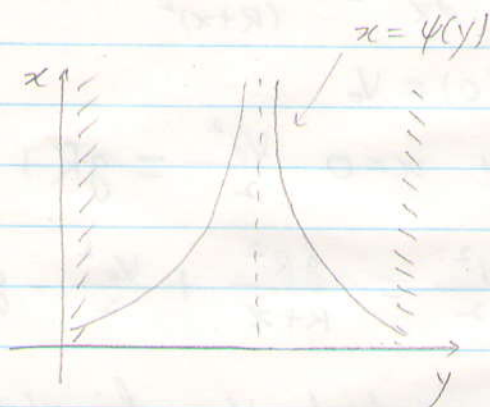 x = ψ(y)
x
y